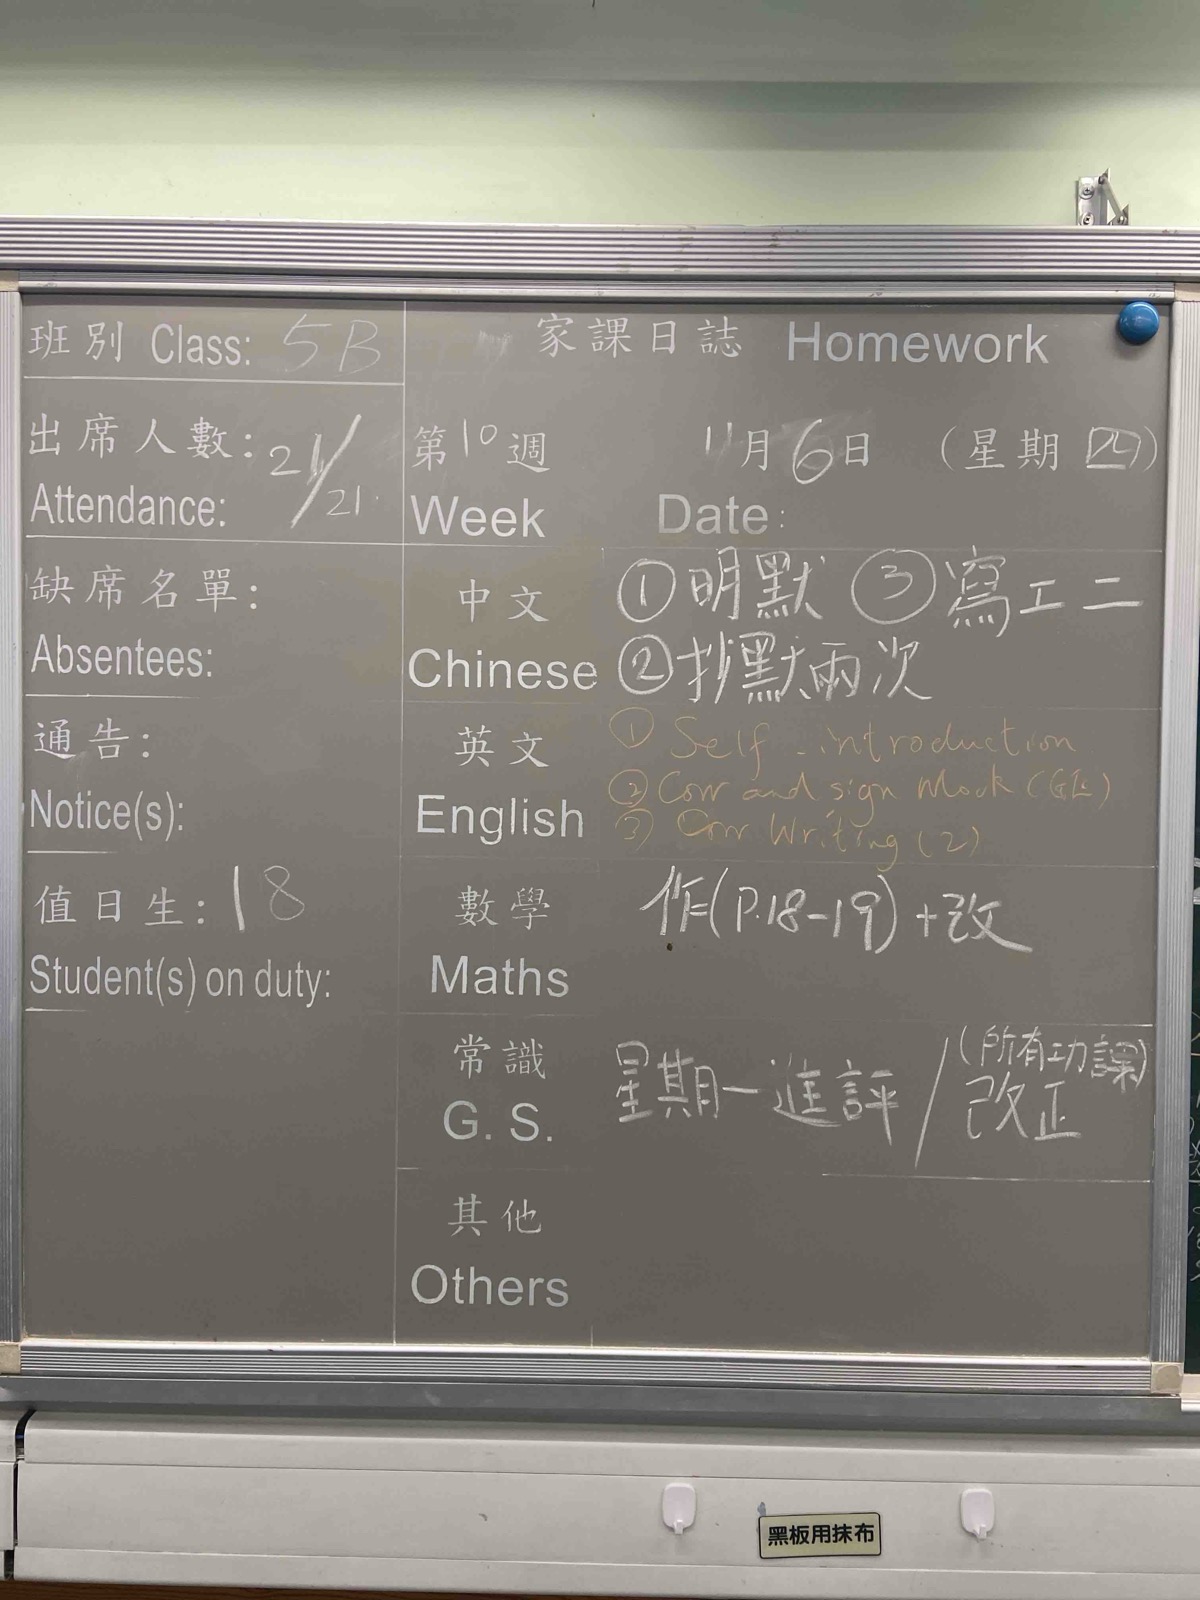 班別 Class: 5B
家課日誌 Homework
出席人數: 21/21
Attendance:
第10週
Week
11月6日 (星期四)
Date:
缺席名單:
Absentees:
中文
Chinese
①明默 ③寫工二
②抄默兩次
通告:
Notice(s):
英文
English
① Self-introduction
② Corr and sign Mock (GE)
③ Corr Writing (2)
值日生: 18
Student(s) on duty:
數學
Maths
作(P.18-19)+改
常識
G. S.
星期一進評/(所有功課)
改正
其他
Others
黑板用抹布